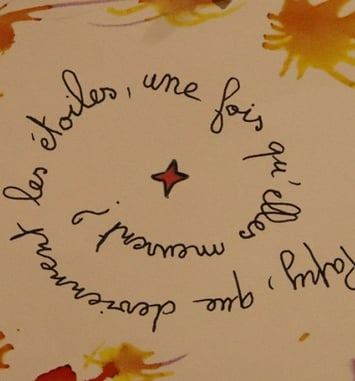 Papy, que deviennent les étoiles, une fois qu'elles meurent ?